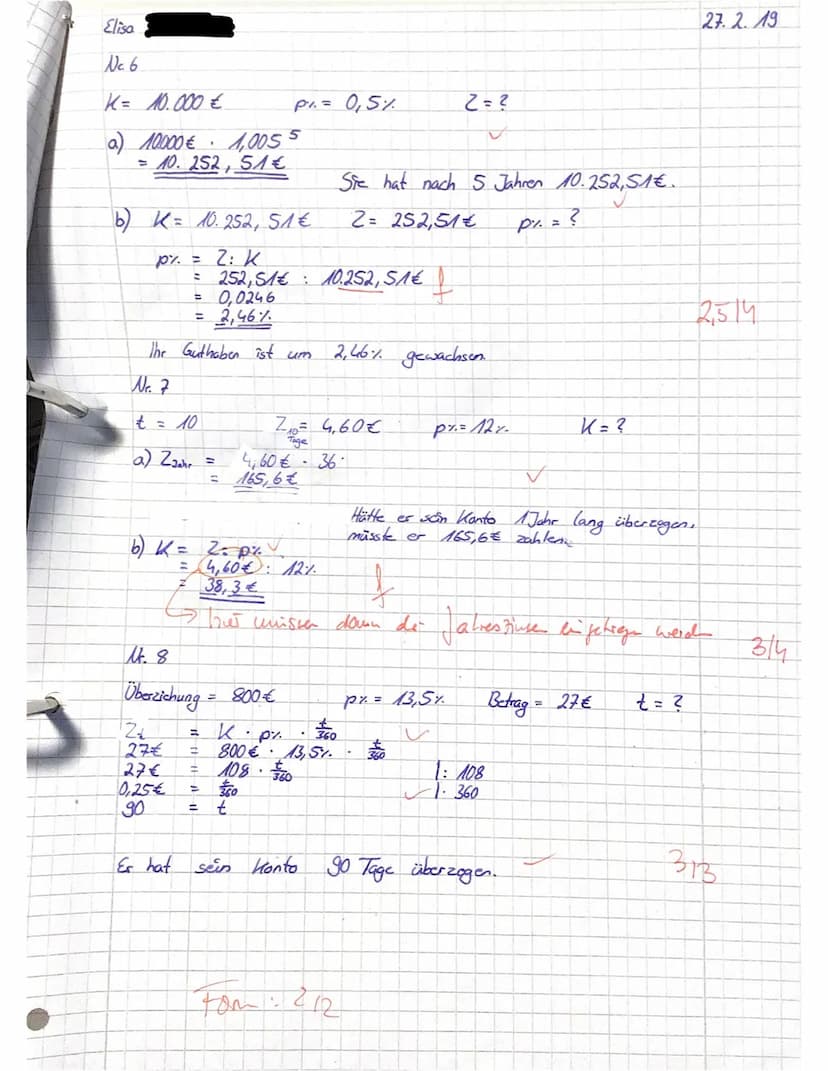 Elisa
27.2.19
Nr. 6
K = 10.000 € p% = 0,5% Z = ?
a) 10000 € · 1,005⁵
= 10.252,51 €
Sie hat nach 5 Jahren 10.252,51 €.
b) K = 10.252,51 € Z = 252,51 € p% = ?
p% = Z : K
= 252,51 € : 10.252,51 € f
= 0,0246
= 2,46%
2,5/4
Ihr Guthaben ist um 2,46% gewachsen.
Nr. 7
t = 10 Z₁₀ Tage = 4,60 € p% = 12% K = ?
a) Z Jahr = 4,60 € · 36
= 165,6 €
Hätte er sein Konto 1 Jahr lang überzogen,
müsste er 165,6 € zahlen.
b) K = Z : p%
= 4,60 € : 12%
= 38,3 € f
hier müssen dann die Jahreszinsen eingetragen werden
3/4
Nr. 8
Überziehung = 800 € p% = 13,5% Betrag = 27 € t = ?
Zt = K · p% · t/360
27 € = 800 € · 13,5% · t/360
27 € = 108 · t/360 |: 108
0,25 € = t/360 |· 360
90 = t
Er hat sein Konto 90 Tage überzogen.
3/3
Form: 2/2